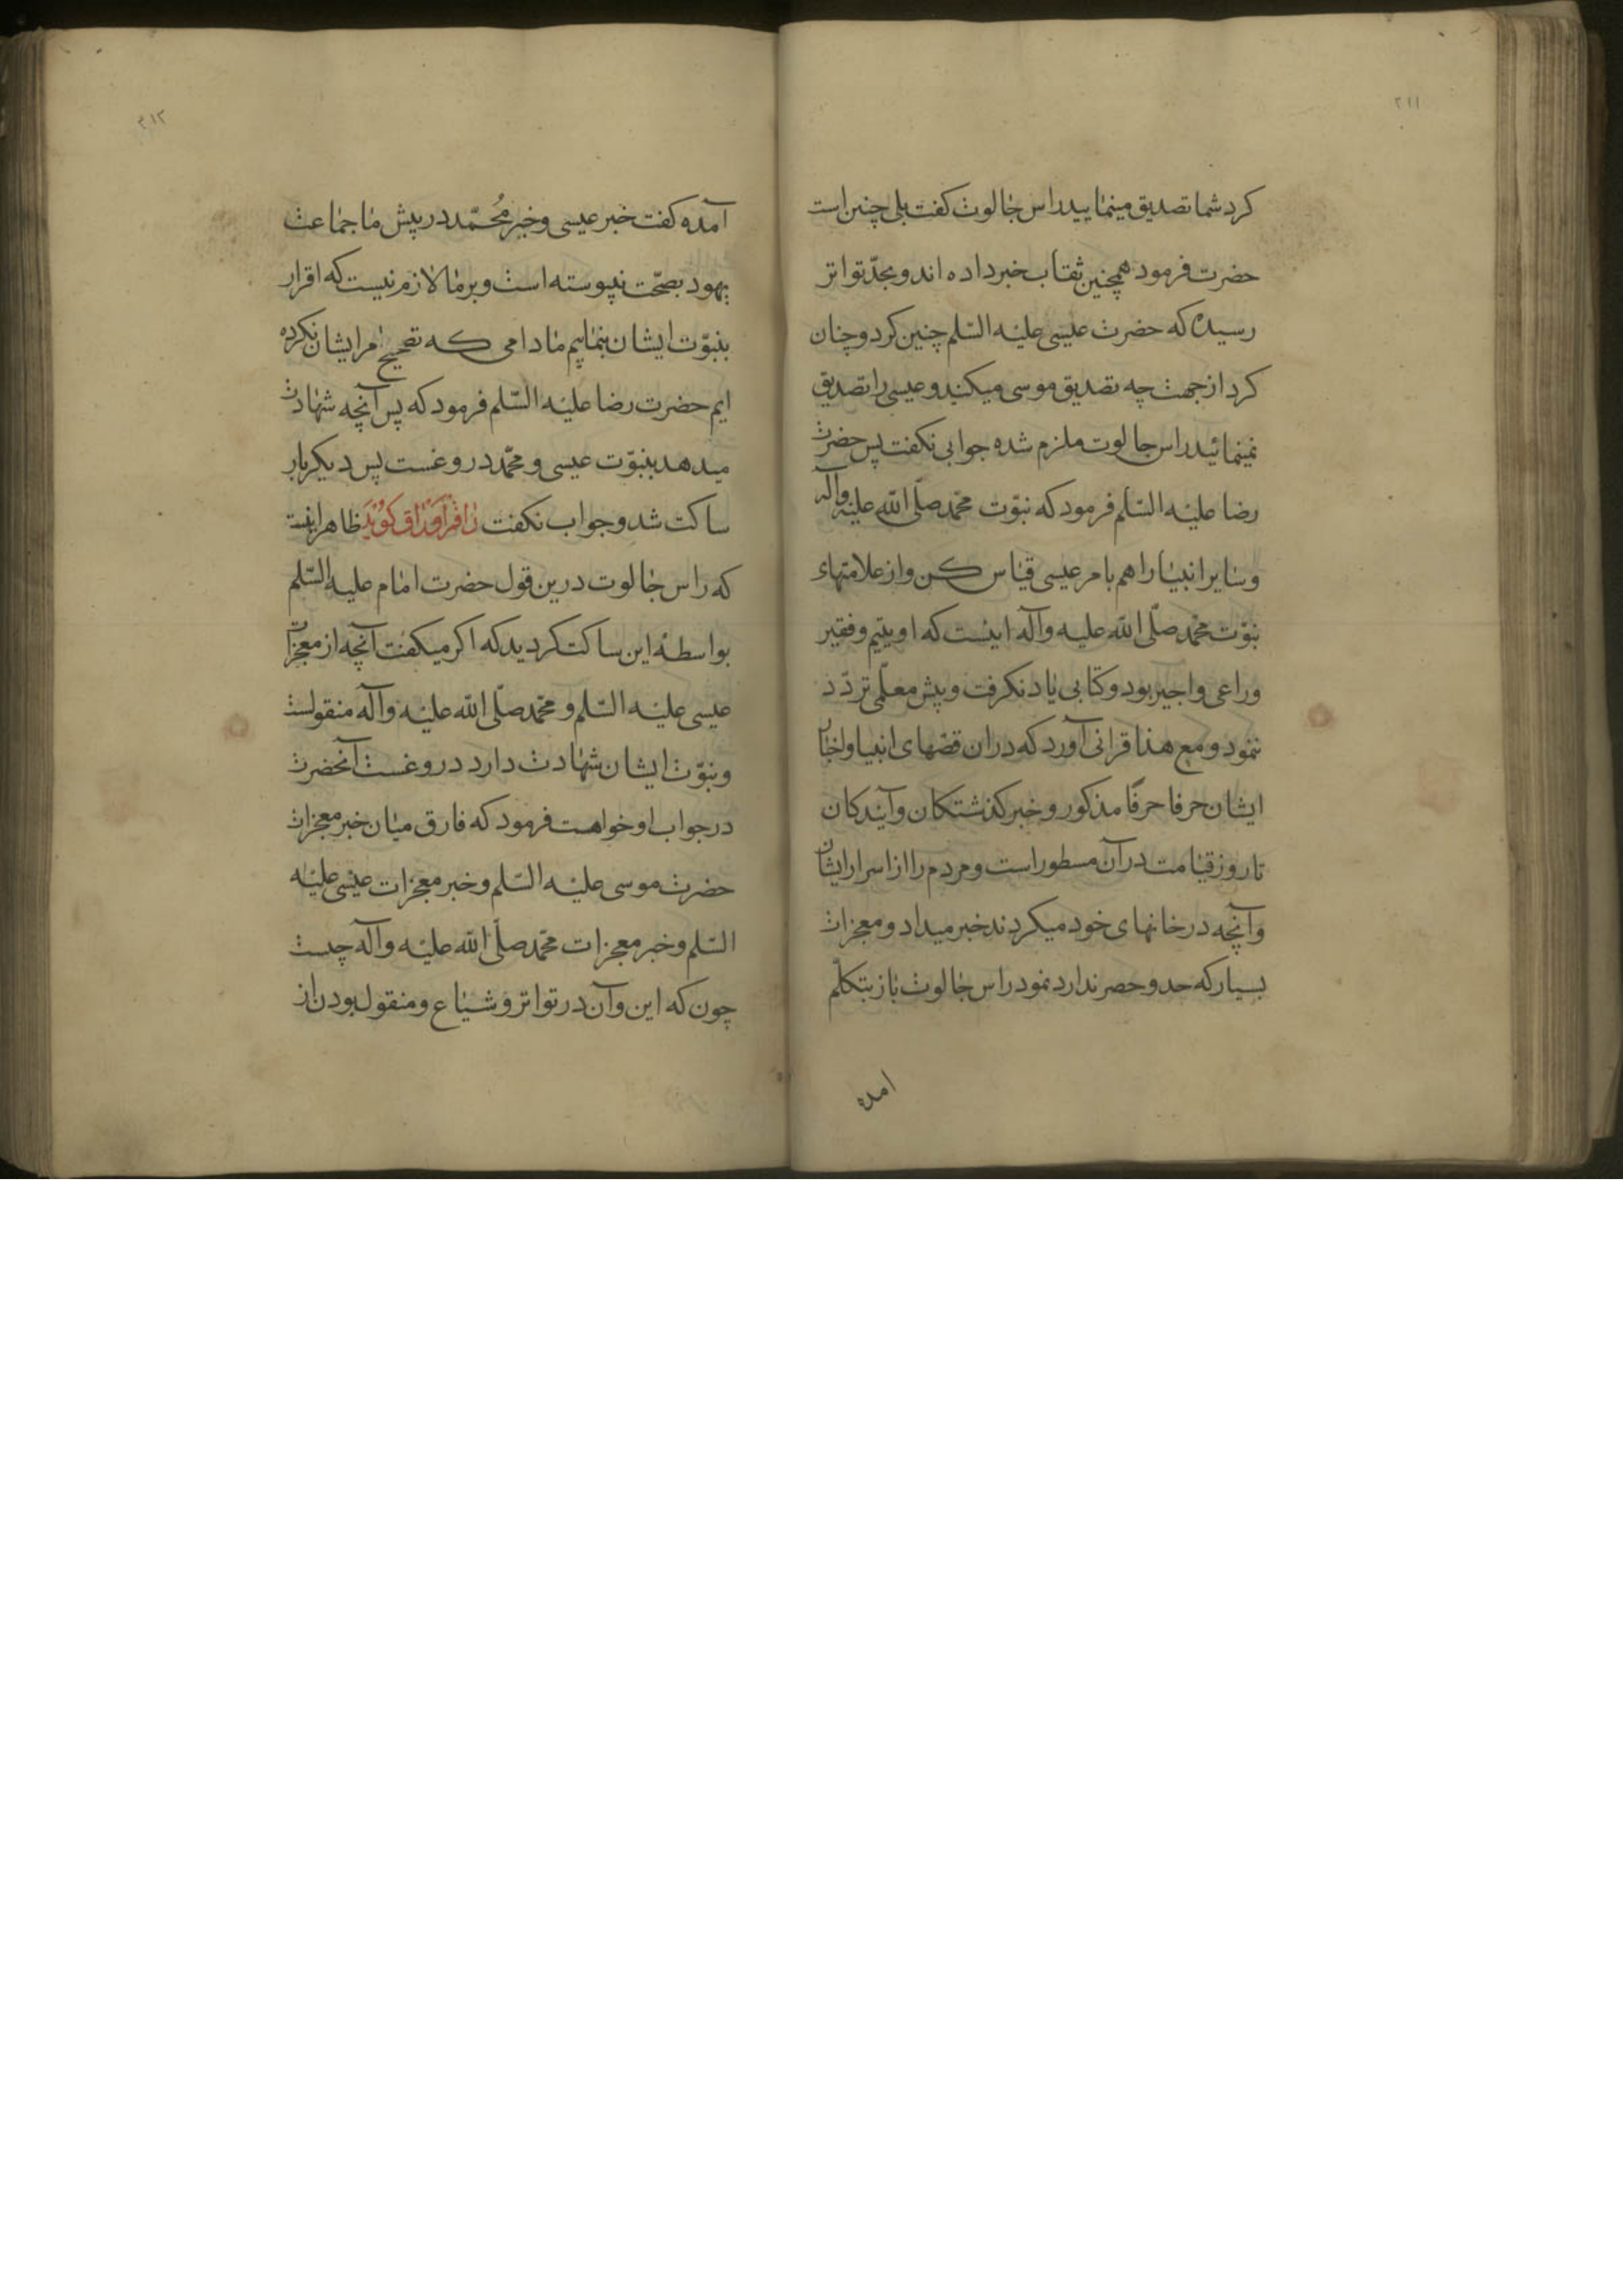 ٢١١
کرد شما تصدیق مینمایید راس جالوت کفت بلی چنین است
حضرت فرمود همچنین ثقتاب خبر داده اند و بحدّ تواتر
رسیده که حضرت عیسی علیه السّلم چنین کرد و چنان
کرد از جهت چه تصدیق موسی میکنید و عیسی را تصدیق
نمینمائید راس جالوت ملزم شده جوابی نکفت پس حضرت
رضا علیه السّلم فرمود که نبوّت محمّد صلّی اللّه علیه وآله
و سایر انبیا را هم بامر عیسی قیاس کن و از علامتهاء
نبوّت محمّد صلّی اللّه علیه وآله اینست که او یتیم و فقیر
و راعی و اجیر بود و کتابی یاد نکرفت و پیش معلّمی تردّد
ننمود و مع هذا قرانی آورد که در ان قصّهای انبیا و اخبار
ایشان حرفا حرفًا مذکور و خبر کذشتکان و آیندکان
تا روز قیامت در آن مسطور است و مردم را از اسرار ایشان
و آنچه در خانهای خود میکردند خبر میداد و معجزات
بسیار که حد و حصر ندارد نمود راس جالوت باز بتکلّم
امده
٢١٢
آمده کفت خبر عیسی و خبر مُحمّد در پیش ما جماعت
یهود بصحّت نپیوسته است و بر ما لازم نیست که اقرار
بنبوّت ایشان بنماییم مادامی که تصحیح امر ایشان نکرده
ایم حضرت رضا علیه السّلم فرمود که پس آنچه شهادت
میدهد بنبوّت عیسی و محمّد دروغست پس دیکر بار
ساکت شد و جواب نکفت ظاهر اینست
که راس جالوت درین قول حضرت امام علیه السّلم
بواسطهٔ این ساکت کردید که اکر میکفت آنچه از معجزات
عیسی علیه السّلم و محمّد صلّی اللّه علیه وآله منقولست
و بنبوّت ایشان شهادت دارد دروغست آنحضرت
در جواب او خواهست فرمود که فارق میان خبر معجزات
حضرت موسی علیه السّلم و خبر معجزات عیسی علیه
السّلم و خبر معجزات محمّد صلّی اللّه علیه وآله چیست
چون که این و آن در تواتر و شیاع و منقول بودن از